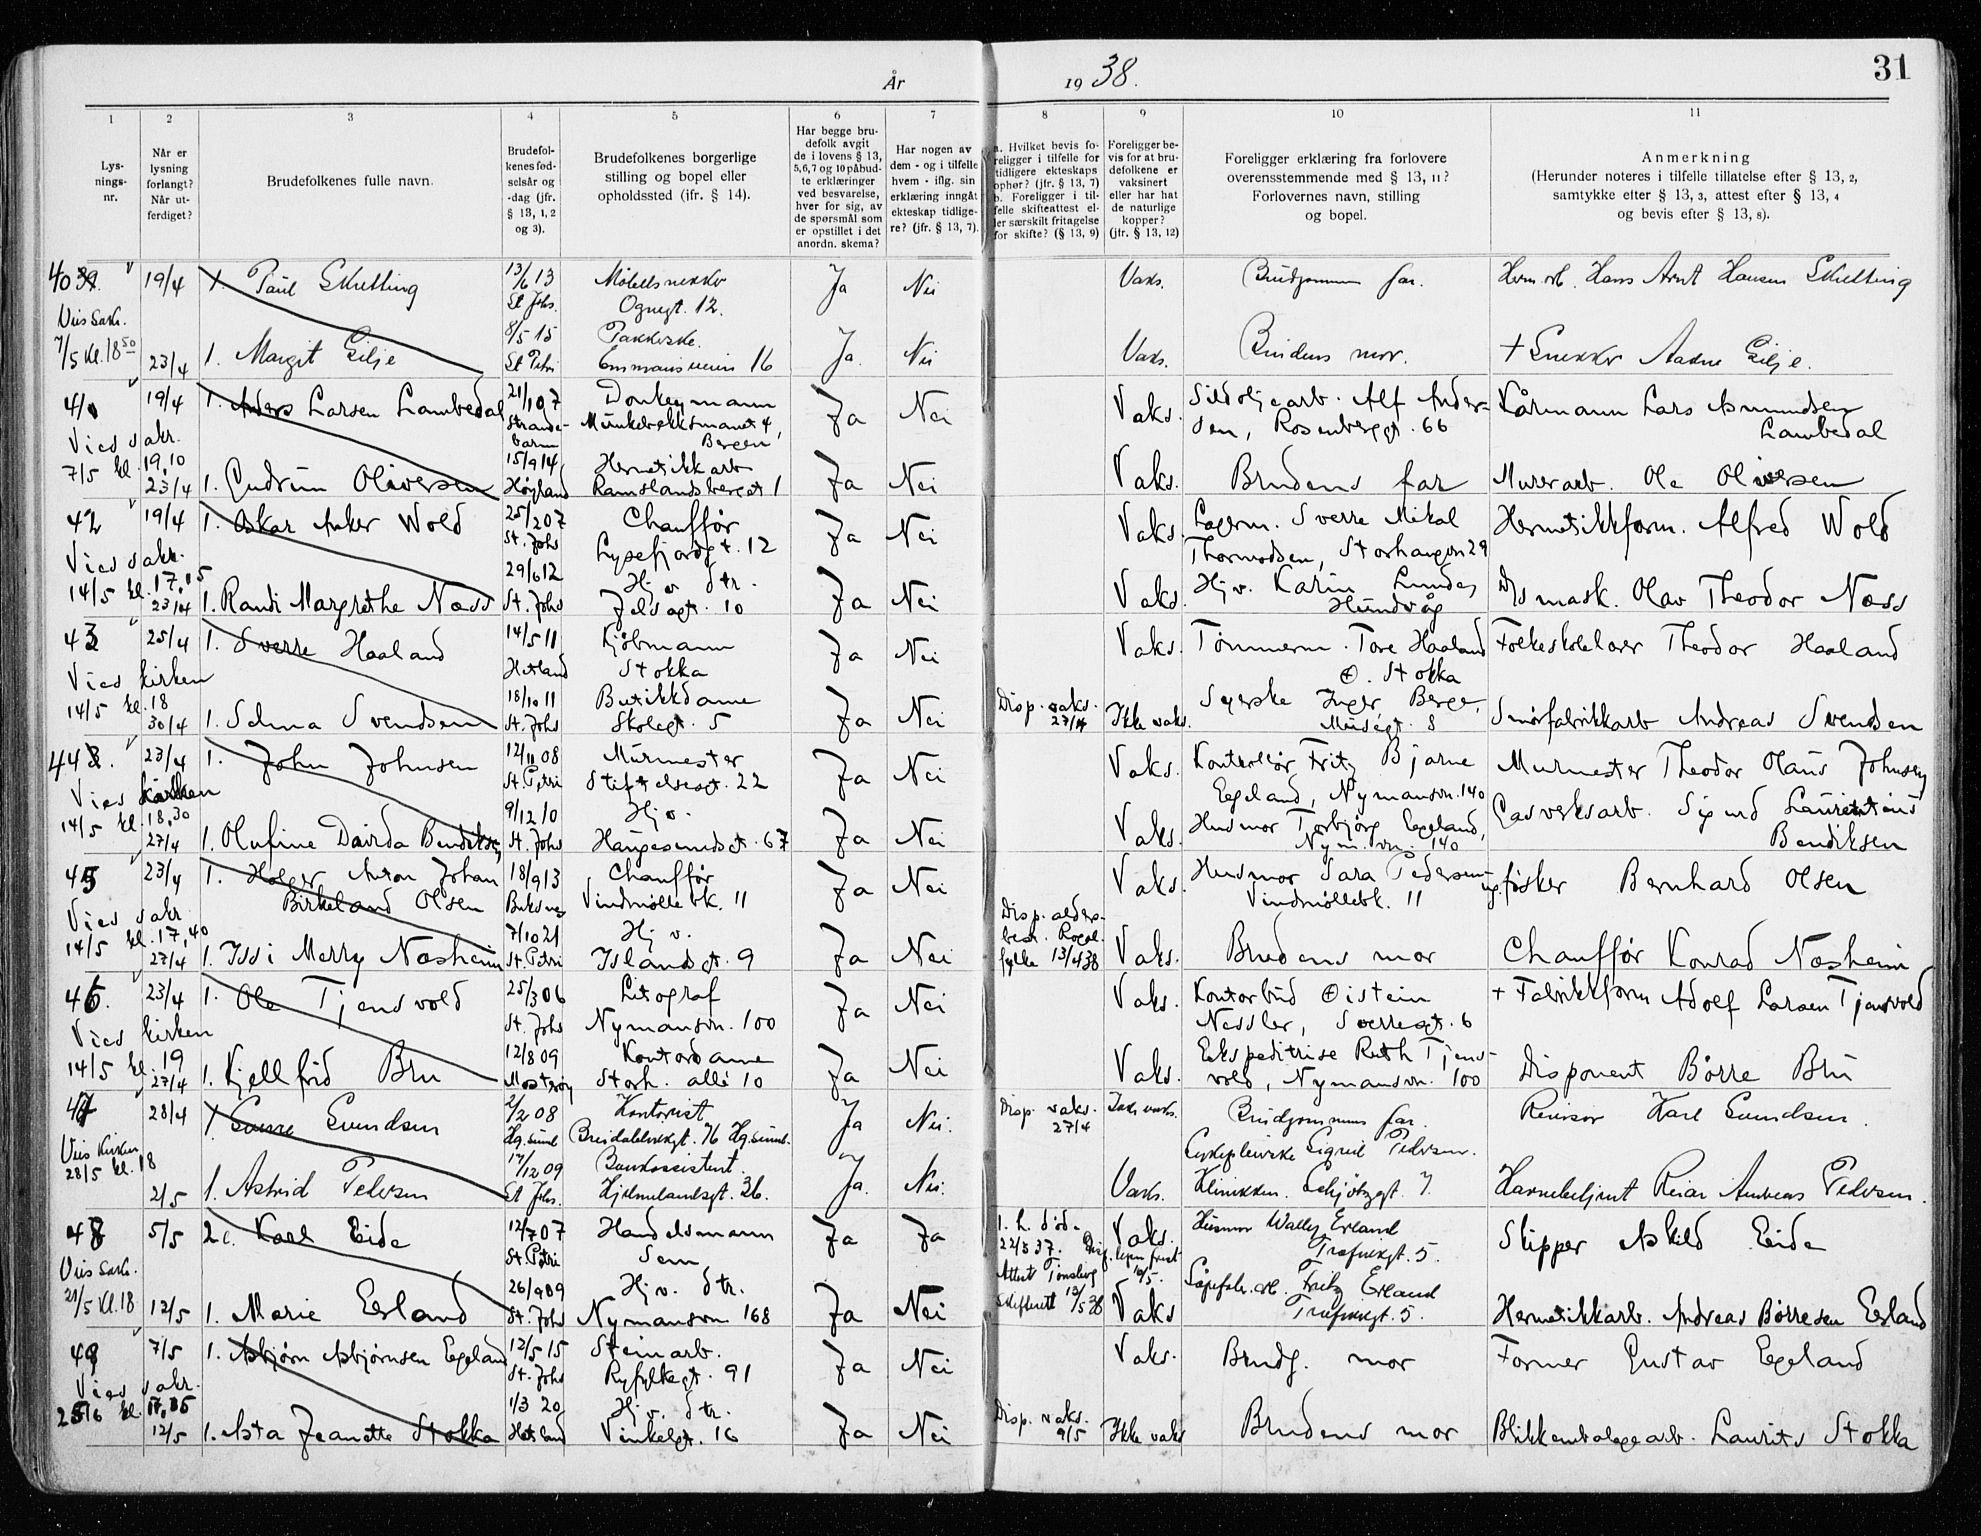 År 1938.
31
1
2
3
4
5
6
7
8
9
10
11
Lys-
nings-
nr.
Når er
lysning
forlangt?
Når ut-
ferdiget?
Brudefolkenes fulle navn.
Brudefol-
kenes fød-
selsår og
-dag (jfr.
§ 13, 1, 2
og 3).
Brudefolkenes borgerlige
stilling og bopel eller
opholdssted (jfr. § 14).
Har begge bru-
defolk avgit
de i lovens § 13,
5, 6, 7 og 10 påbud-
te erklæringer
ved besvarelse,
hver for sig, av
de spørsmål som
er opstillet i det
anordn. skema?
Har nogen av
dem - og i tilfelle
hvem - iflg. sin
erklæring inngåt
ekteskap tidlige-
re? (jfr. § 13, 7).
a. Hvilket bevis fo-
religger i tilfelle for
tidligere ekteskaps
ophør? (jfr. § 13, 7)
b. Foreligger i til-
felle skifteattest el-
ler særskilt fritagelse
for skifte? (§ 13, 9)
Foreligger be-
vis for at bru-
defolkene er
vaksinert
eller har hat
de naturlige
kopper?
(jfr. § 13, 12)
Foreligger erklæring fra forlovere
overensstemmende med § 13, 11?
Forlovernes navn, stilling
og bopel.
Anmerkning
(Herunder noteres i tilfelle tillatelse efter § 13, 2,
samtykke efter § 13, 3, attest efter § 13, 4
og bevis efter § 13, 8).
40 19/4 1. Paul Skutting 13/6 13 Møbelsnekker Ja Nei Vaks. Brudgommens far. Herm.arb. Hans Arnt Hansen Skutting
Vies Sakr. St Johs. Ognegt. 12.
7/5 kl. 18 50 8/5 15 Pakkerske.
23/4 1. Margit Gilje St Petri Emmausveien 16 Ja Nei Vaks. Brudens mor. + Snekker Aadne Gilje.
41 19/4 1. Anders Larsen Lambedal 21/10 7 Donkeymann Ja Nei Vaks. Sildoljearb. Alf Ander- Kårmann Lars Amundsen
Vies sakr. Strande- Munkebekksmauet 4, sen, Rosenberggt. 66 Lambedal
barm Bergen
7/5 kl. 19,10 15/9 14 Hermetikkarb
23/4 1. Gudrun Oliversen Høyland Ramslandsberget 1 Ja Nei Vaks. Brudens far Murerarb. Ole Oliversen
42 19/4 1. Oskar Anker Wold 25/2 07 Chauffør Ja Nei Vaks. Lagerm. Sverre Mikal Hermetikkform. Alfred Wold
Vies sakr. St. Johs Lysefjordgt. 12 Thormodsen, Storhaugvn 29
14/5 kl. 17,15 29/6 12 Hj v. dtr. Hjv. Karin Lunde,
23/4 1. Randi Margrethe Næss St. Johs Jelsagt. 10 Ja Nei Vaks Hundvåg D/s mask. Olav Theodor Næss
43 25/4 1. Sverre Haaland 14/5 11 Kjøbmann Ja Nei Vaks. Tømmerm. Tore Haaland Folkeskolelærer Theodor Haaland
Vies kirken Hetland Stokka Ø. Stokka
14/5 kl. 18 18/10 11 Butikkdame Syerske Inger Berge,
30/4 1. Selma Svendsen St. Johs Skolegt. 5 Ja Nei Disp. vaks. 27/4 Ikke vaks. Musegt. 8 Smørfabrikkarb Andreas Svendsen
44 23/4 1. John Johnsen 12/11 08 Murmester Ja Nei Vaks. Kontrollør Fritz Bjarne Murmester Theodor Olaus Johnsen
Vies kirken St. Petri Stiftelsesgt. 22 Egeland, Nymansvn. 140
14/5 kl. 18,30 9/12 10 Hj v. Husmor Torbjørg Egeland, Gasverksarb. Sigurd Laurentius
27/4 1. Olufine Davida Bendiksen St. Johs Haugesundsgt. 67 Ja Nei Vaks. Nym.vn. 140 Bendiksen
45 23/4 1. Holger Anton Johan 18/9 13 Chauffør Ja Nei Vaks. Husmor Sara Pedersen ug. fisker Bernhard Olsen
Birkeland Olsen Buksnes Vindmøllebk. 11 Vindmøllebk. 11
Vies sakr 7/10 21 Hj v. Disp. alders-
14/5 kl. 17,40 best. Rogal.
27/4 1. Issi Merry Næsheim St. Petri Islandsgt. 9 Ja Nei fylke 13/4 38 Vaks. Brudens mor Chauffør Konrad Næsheim
46. 23/4 1. Ole Tjensvold 25/3 06 Litograf Ja Nei Vaks. Kontorbud Øistein + Fabrikkform Adolf Larsen Tjensvold
Vies kirken St. Johs Nymansvn. 100 Nessler, Sverresgt. 6
14/5 kl. 19 12/8 09 Kontordame Ekspeditrise Ruth Tjens-
27/4 1. Kjellfrid Bru Mosterøy Storh. allé 10 Ja Nei Vaks. vold, Nymansvn. 100 Disponent Børre Bru
47 28/4 1. Sverre Svendsen 2/2 08 Kontorist Ja Nei. Disp. vaks. 27/4 Ikke vaks. Brudgommens far. Revisor Karl Svendsen.
Vies Kirken Hg.sund Breidablikkgt. 76 Hg.sund. Sykepleierske Sigrid Pedersen.
28/5 kl. 18 17/12 09 Bankassistent.
2/5 1. Astrid Pedersen St Johs. Hjelmelandsgt. 36. Ja. Nei. Vaks. Klinikken. Schjøtzgt. 7. Havnebetjent Reiar Andreas Pedersen.
48 5/5 2e. Karl Eide 12/7 07 Handelsmann Ja Ja 1. h. død. Vaks. Husmor Wally Erland Skipper Askild Eide
Vies Sakr. St. Petri Sem 22/3 37. Træfnkgt. 5.
21/5 kl. 18 26/9 89 Hj v. dtr. Attest Tønsberg 10/5. Såpefabr.arb. Fritz Erland
12/5 1. Marie Erland St. Johs Nymansvn 168 Ja Nei Skifterett 12/5 38 Vaks Træfnkgt. 5. Hermetikkarb. Andreas Børresen Erland
49 7/5 1. Asbjørn Asbjørnsen Egeland 12/5 15 Steinarb. Ja Nei Vaks. Brudg. mor Former Gustav Egeland
Vies sakr. St. Johs Ryfylkegt. 91
25/6 kl. 17,35 1/3 20 Hj v. dtr.
12/5 1. Asta Jeanette Stokka Hetland Vinkelgt. 16 Ja Nei Disp. vaks. 9/5 Ikke vaks Brudens mor Blikkemballagearb. Laurits Stokka